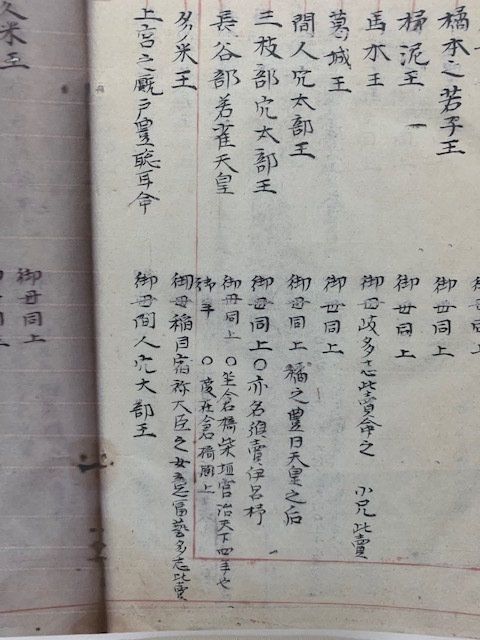 橘本之若子王　御母同上
杼泥王　御母同上
馬水王　御母岐多志比賣命之　小兄比賣
葛城王　御母同上
間人穴太部王　御母同上　橘之豊日天皇之后
三枝部穴太部王　御母同上〇亦名須賣伊呂杼
長谷部若雀天皇　御母同上　〇坐倉橋柴垣宮治天下四年也
御年　〇陵在倉橋岡上
多米王　御母稲目宿祢大臣之女意富藝多志比賣
上宮之厩戸豊聡耳命　御母間人穴太部王
久米王　御母同上